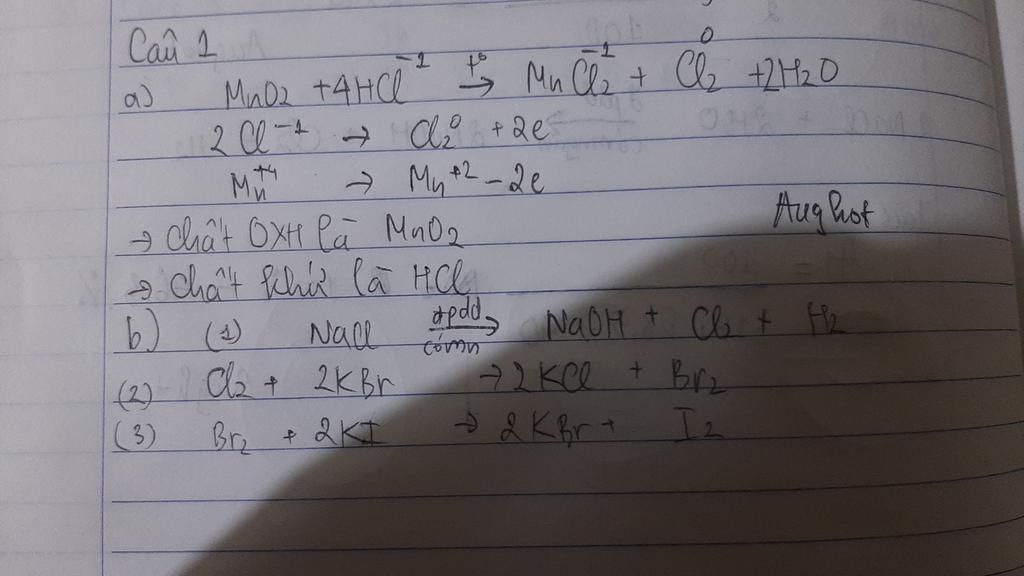 Câu 1
a) MnO2 + 4HCl⁻¹ t° → MnCl2⁻¹ + Cl2⁰ + 2H2O
2Cl⁻¹ → Cl2⁰ + 2e
Mn⁺⁴ → Mn⁺² - 2e
→ chất OXH là MnO2
→ chất khử là HCl
b) (1) NaCl đpdd → có mn NaOH + Cl2 + H2
(2) Cl2 + 2KBr → 2KCl + Br2
(3) Br2 + 2KI → 2KBr + I2